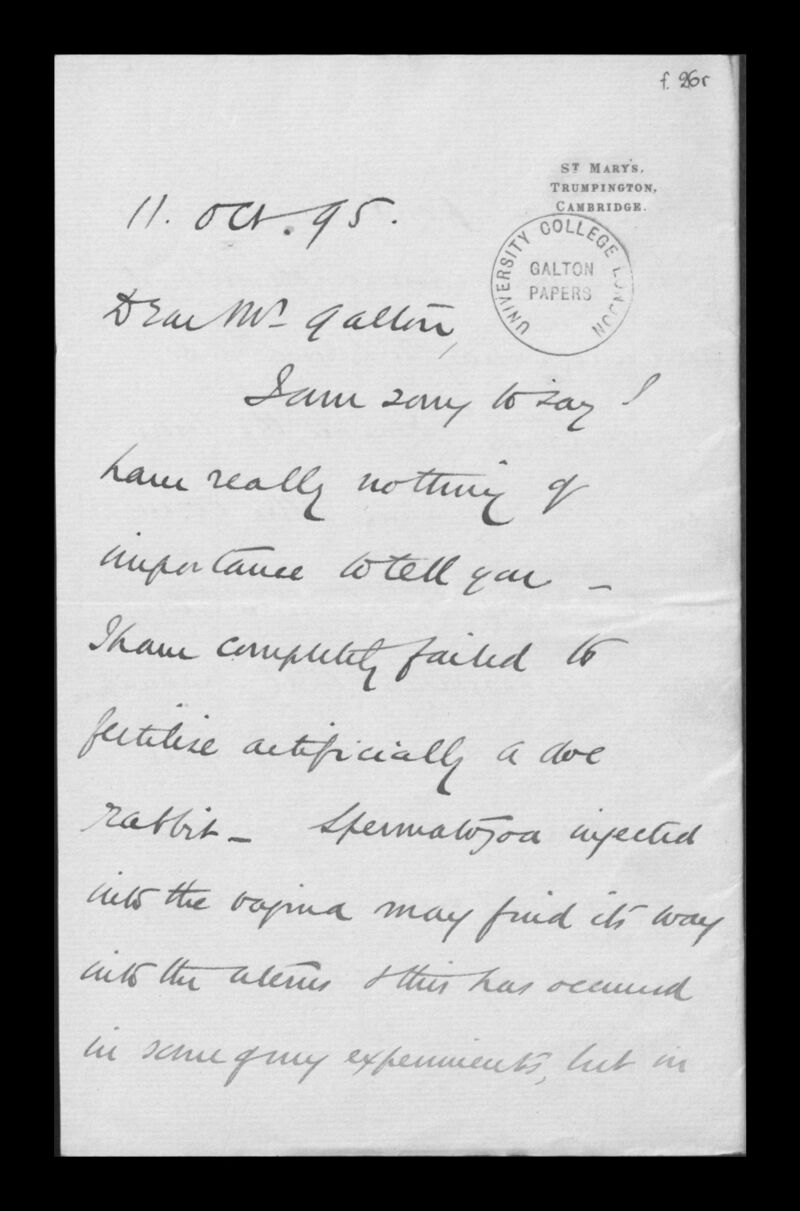 f. 26r
ST MARY'S,
TRUMPINGTON,
CAMBRIDGE.
11. Oct. 95.
UNIVERSITY COLLEGE LONDON
GALTON
PAPERS
Dear Mr Galton,
I am sorry to say I
have really nothing of
importance to tell you –
I have completely failed to
fertilise artificially a doe
rabbit – Spermatozoa injected
into the vagina may find its way
into the uterus & this has occurred
in some of my experiments, but in